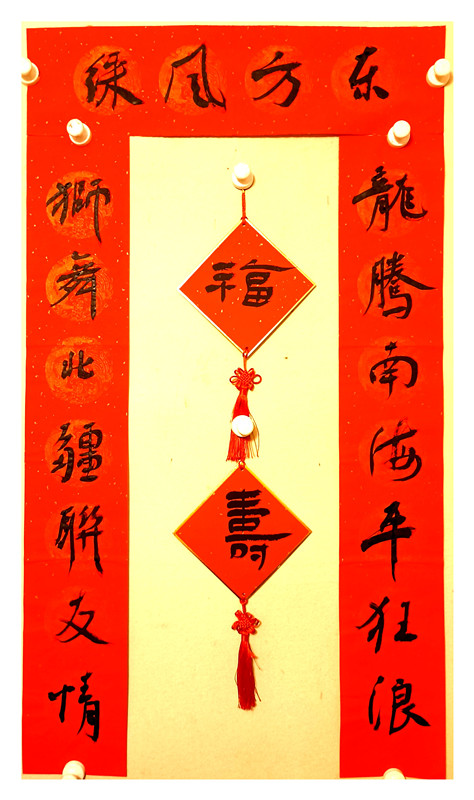 东方风綵
龍腾南海平狂浪
獅舞北疆聯友情
福
壽